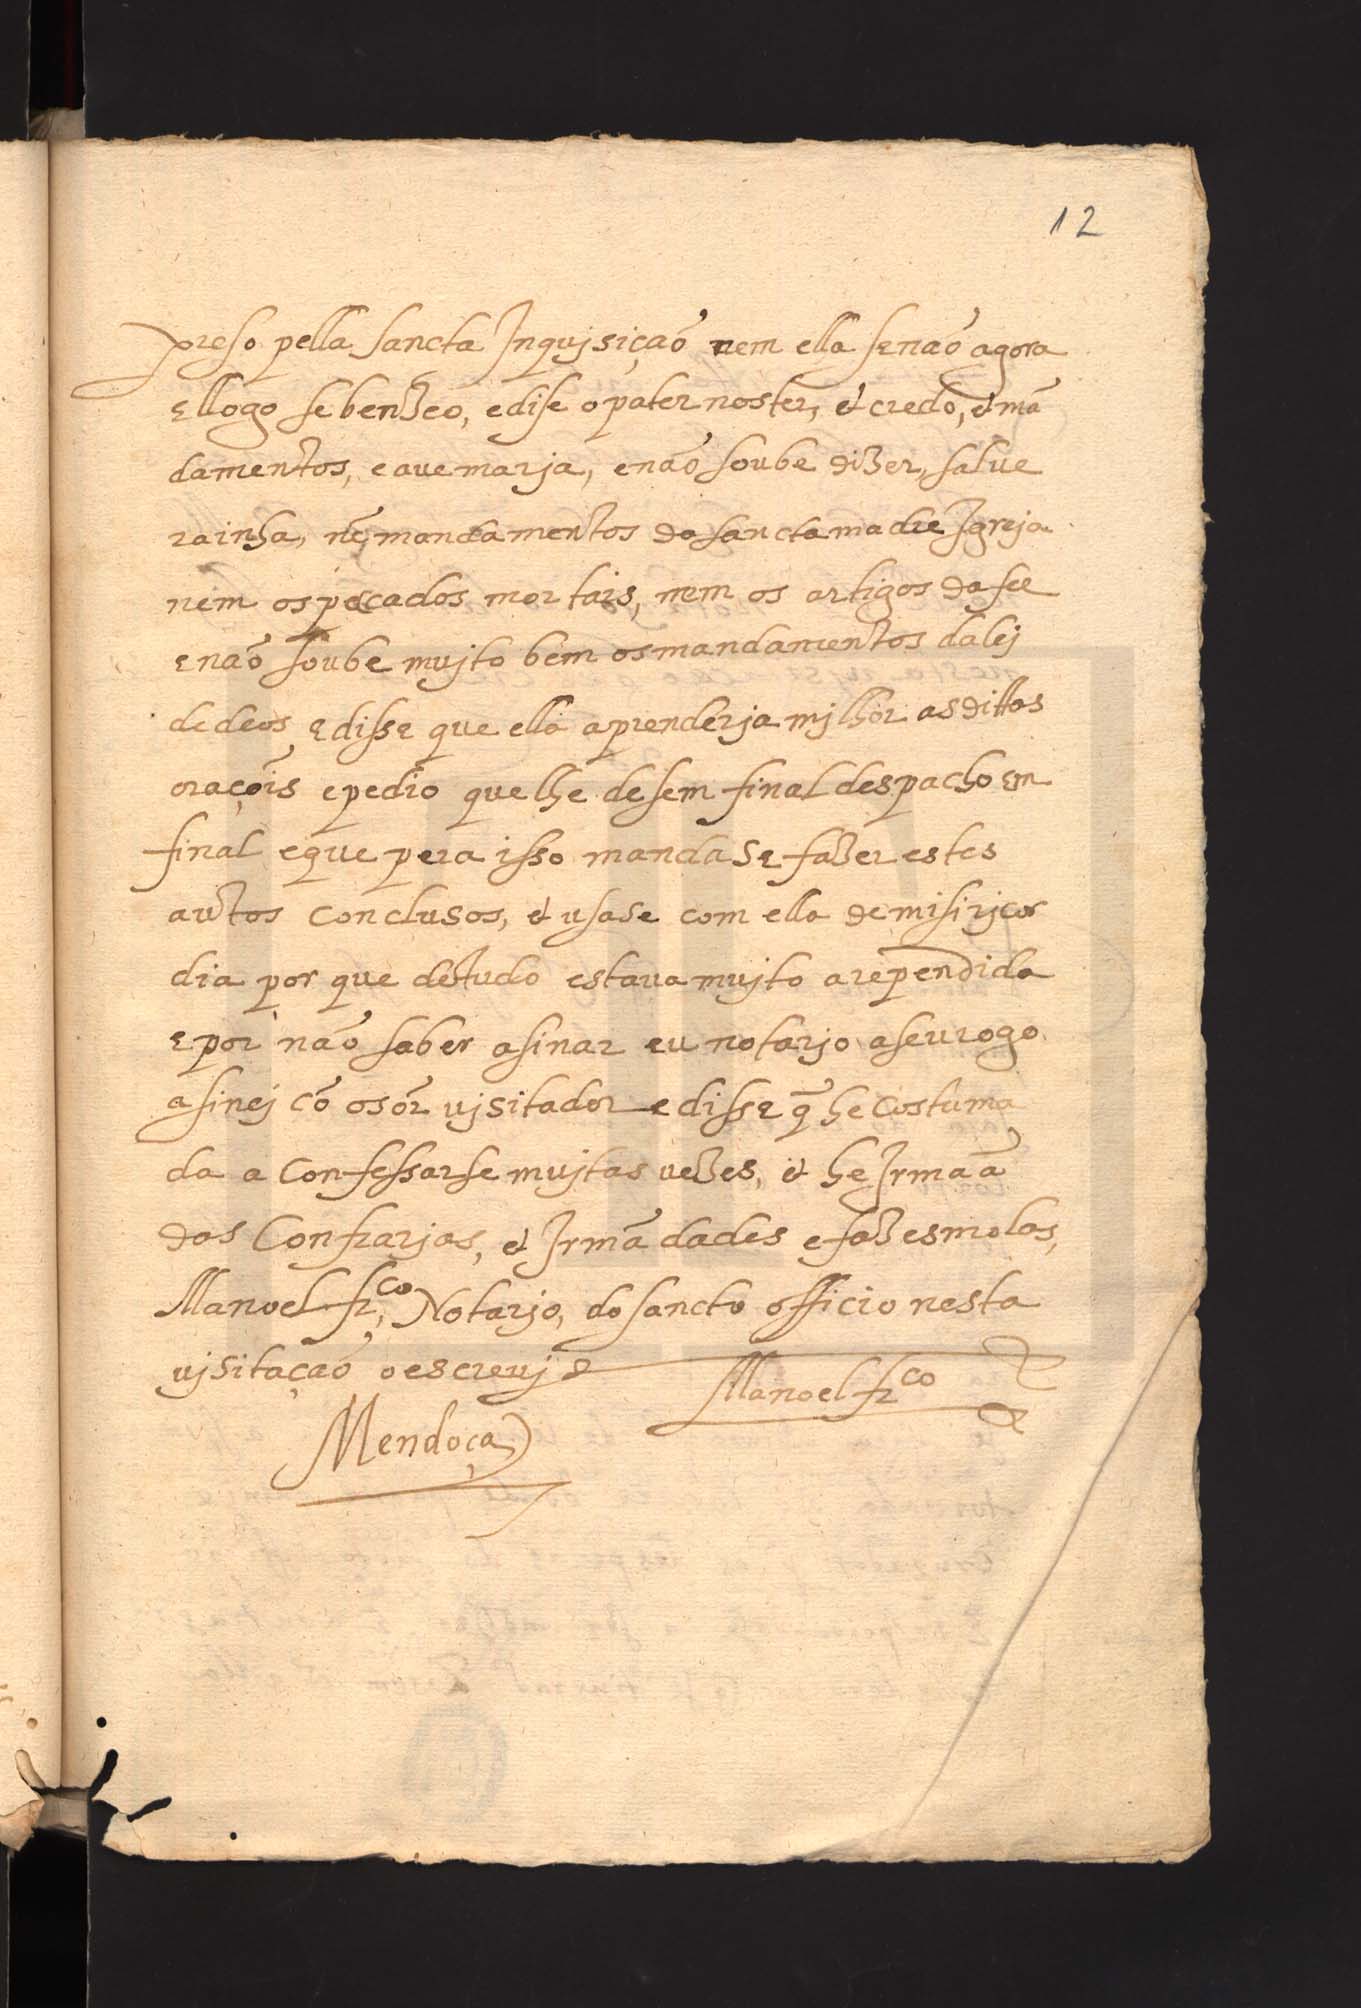 12
preso pella sancta Inqujsiçaõ nem ella senaõ agora
e llogo se benzeo, e dise o pater noster, & credo, & mã
damentos, e aue marja, e naõ soube dizer, salue
rainha, nẽ mandamentos da sancta madre Igreja
nem os peccados mortais, nem os artigos da fee
e naõ soube mujto bem os mandamentos da lej
de deos e disse que ella aprenderja mjlhor as dittas
oraçõis e pedio que lhe desem final despacho em
final e que pera isso mandase fazer estes
autos conclusos, & usase com ella de misirjcor
dia por que de tudo estaua mujto arependida
e por naõ saber asinar eu notarjo a seu rogo
asinej cõ o sõr ujsitador e disse q̃ he costuma
da a confessarse mujtas uezes, & he Irmaã
das Confrarjas, & Irmãdades e faz esmolas,
Manoel frco, Notarjo, do sancto officio nesta
ujsitaçaõ o escreuj
Manoel frco
Mendoça